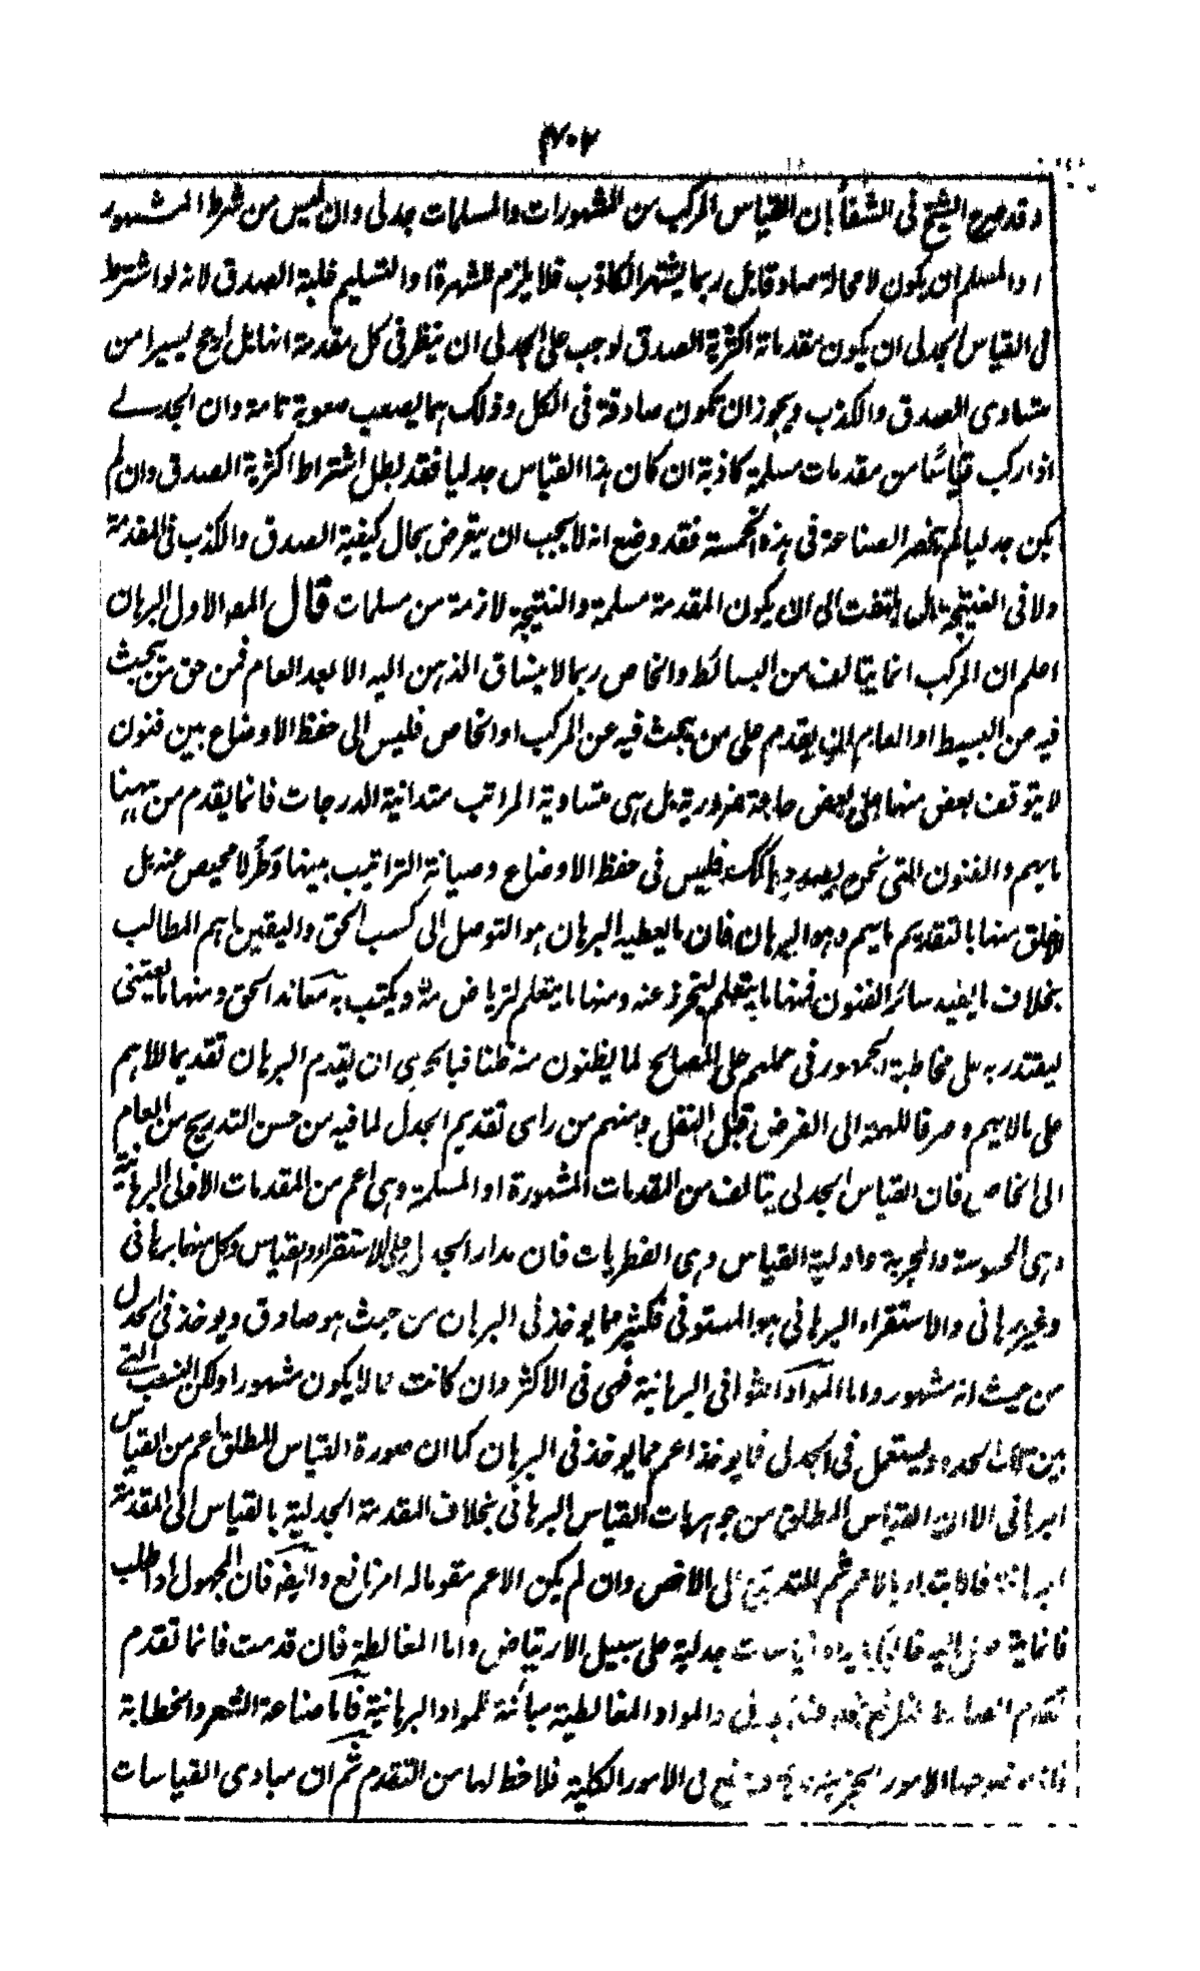 ٣٠٢
وقد صرح الشيخ فى الشفأ بان القياس المركب من المشهورات والمسلمات جدلى وان ليس من شرط المشهور
او المسلم ان يكون لا محالة صادقا بل ربما يشتهر الكاذب فلا يلزم الشهرة او التسليم غلبة الصدق لانه لو اشترط
فى القياس الجدلى ان يكون مقدماته اكثرية الصدق لوجب على الجدلى ان ينظر فى كل مقدمة انها بل ارجح يسيرا من
متساوى الصدق والكذب ويجوز ان تكون صادقة فى الكل وذلك مما يصعب صعوبة تامة وان الجدلے
اذا ركب قياسًا من مقدمات مسلمة كاذبة ان كان هذا القياس جدليا فقد بطل اشتراط اكثرية الصدق وان لم
يكن جدليا لم تنحصر الصناعة فى هذه الخمسة فقد وضع انه لا يجب ان يتعرض بحال كيفية الصدق والكذب فى المقدمة
ولا فى النتيجة بل يلتفت الى ان يكون المقدمة مسلمة والنتيجة لازمة من مسلمات قال المصه الاول البرهان
اعلم ان المركب انما يتالف من البسائط والخاص ربما لا ينساق الذهن اليه الا بعد العام فمن حق من يبحث
فيه من البسيط او العام ان يقدم على من يبحث فيه عن المركب او الخاص فليس الى حفظ الاوضاع بين فنون
لا يتوقف بعض منها على بعض حاجة ضرورية بل هى متساوية المراتب متدانية الدرجات فانما يقدم من ههنا
ما يهم والفنون التى نحن بصددها كك فليس فى حفظ الاوضاع وصيانة التراتيب بينها وَطَرٌ لا محيص عنه بل
الاخلق منها بالتقديم ما يهم وهو البرهان فان ما يعطيه البرهان هو التوصل الى كسب الحق واليقين ما هم المطالب
بخلاف ما يفيد سائر الفنون فمنها ما يتعلم ليتحرز عنه ومنها ما يتعلم لتريا ض به ويكتب به معاند الحق ومنها ما يعتنى
ليقتدر به على مخاطبة الجمهور فى حملهم على المصالح لما يظنون منه ظنا فبالحرى ان يقدم البرهان تقديما للاهم
على ما لا يهم وصرفا للهمة الى الفرض قبل النفل ومنهم من راى تقديم الجدل لما فيه من حسن التدريج من العام
الى الخاص فان القياس الجدلى يتالف من المقدمات المشهورة او المسلمة وهى اعم من المقدمات الاولى البرهانية
وهى المحسوسة والمجربة واولية القياس وهى الفطريات فان مدار الجدل على الاستقراء والقياس وكل منهما برهانى
وغير برهانى والاستقراء البرهانى هو المستوفى فكثير مما يوخذ فى البرهان من حيث هو صادق ويوخذ فى الجدل
من حيث انه مشهور واما المواد الثوانى البرهانية فهى فى الاكثر وان كانت مما لا يكون مشهورا ولكن النسب التے
بين تلك الحدود يستعمل فى الجدل فما يوخذ اعم مما يوخذ فى البرهان كما ان صورة القياس المطلق اعم من القياس
البرهانى الا ان القياس المطلق من جوهريات القياس البرهانى بخلاف المقدمة الجدلية بالقياس الى المقدمة
البرهانية فالابتداء بالاعم ثم التدريج الى الاخص وان لم يكن الاعم مقوما له امر نافع وايضه فان المجهول اذا طلب
فانما جدلية على سبيل الارتياض واما المغالطة فان قدمت فانما تقدم
تقديم والمواد المغالطية مبائنة للمواد البرهانية فاما صناعة الشعر والخطابة
الامور الجزئية فى الامور الكلية فلا حظ لها من التقدم ثم ان مبادى القياسات